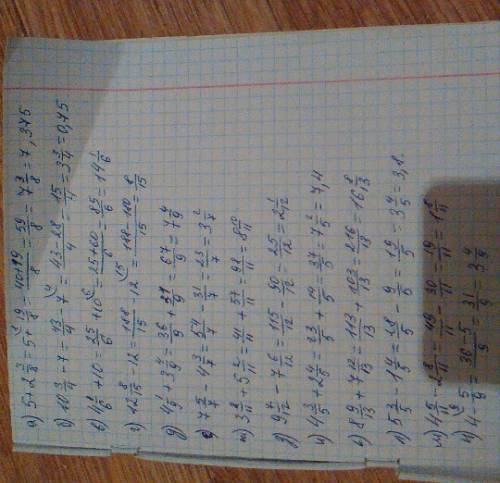 а) 5+2 3/8 = 5+ 19/8 = 40+19/8 = 59/8 = 7 3/8 = 7,375
б) 10 3/4 - 7 = 43/4 - 7 = 43-28/4 = 15/4 = 3 3/4 = 0,75
в) 4 1/6 + 10 = 25/6 + 10 = 25+60/6 = 85/6 = 14 1/6
г) 12 8/15 - 12 = 188/15 - 12
д) 4 = 36/9 + 31/9 = 67/9 = 7 4/9
е) 7 5/7 - 4 3/7 = 54/7 - 31/7 = 23/7 = 3 2/7
ж) 3 8/11 + 5 2/11 = 41/11 + 57/11 = 98/11 = 8 10/11
9 7/12 - 7 6/12 = 115/12 - 90/12 = 25/12 = 2 1/12
и) 4 3/5 + 2 4/5 = 7 2/5 = 7,4
к) 8 9/13 + 7 12/13 = 113/13 + 103/13 = 216/13 = 16 8/13
л) 5 3/5 - 1 4/5 = 28/5 - 9/5 = 19/5 = 3 4/5 = 3,8
м) 4 5/11 - 2 8/11 = 49/11 - 30/11 = 19/11 = 1 8/11
н) 4 - 5/9 = 36-5/9 = 31/9 = 3 4/9